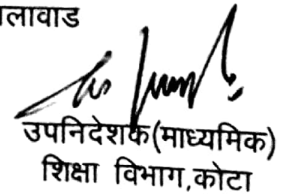 लावाड
उपनिदेशक(माध्यमिक)
शिक्षा विभाग,कोटा